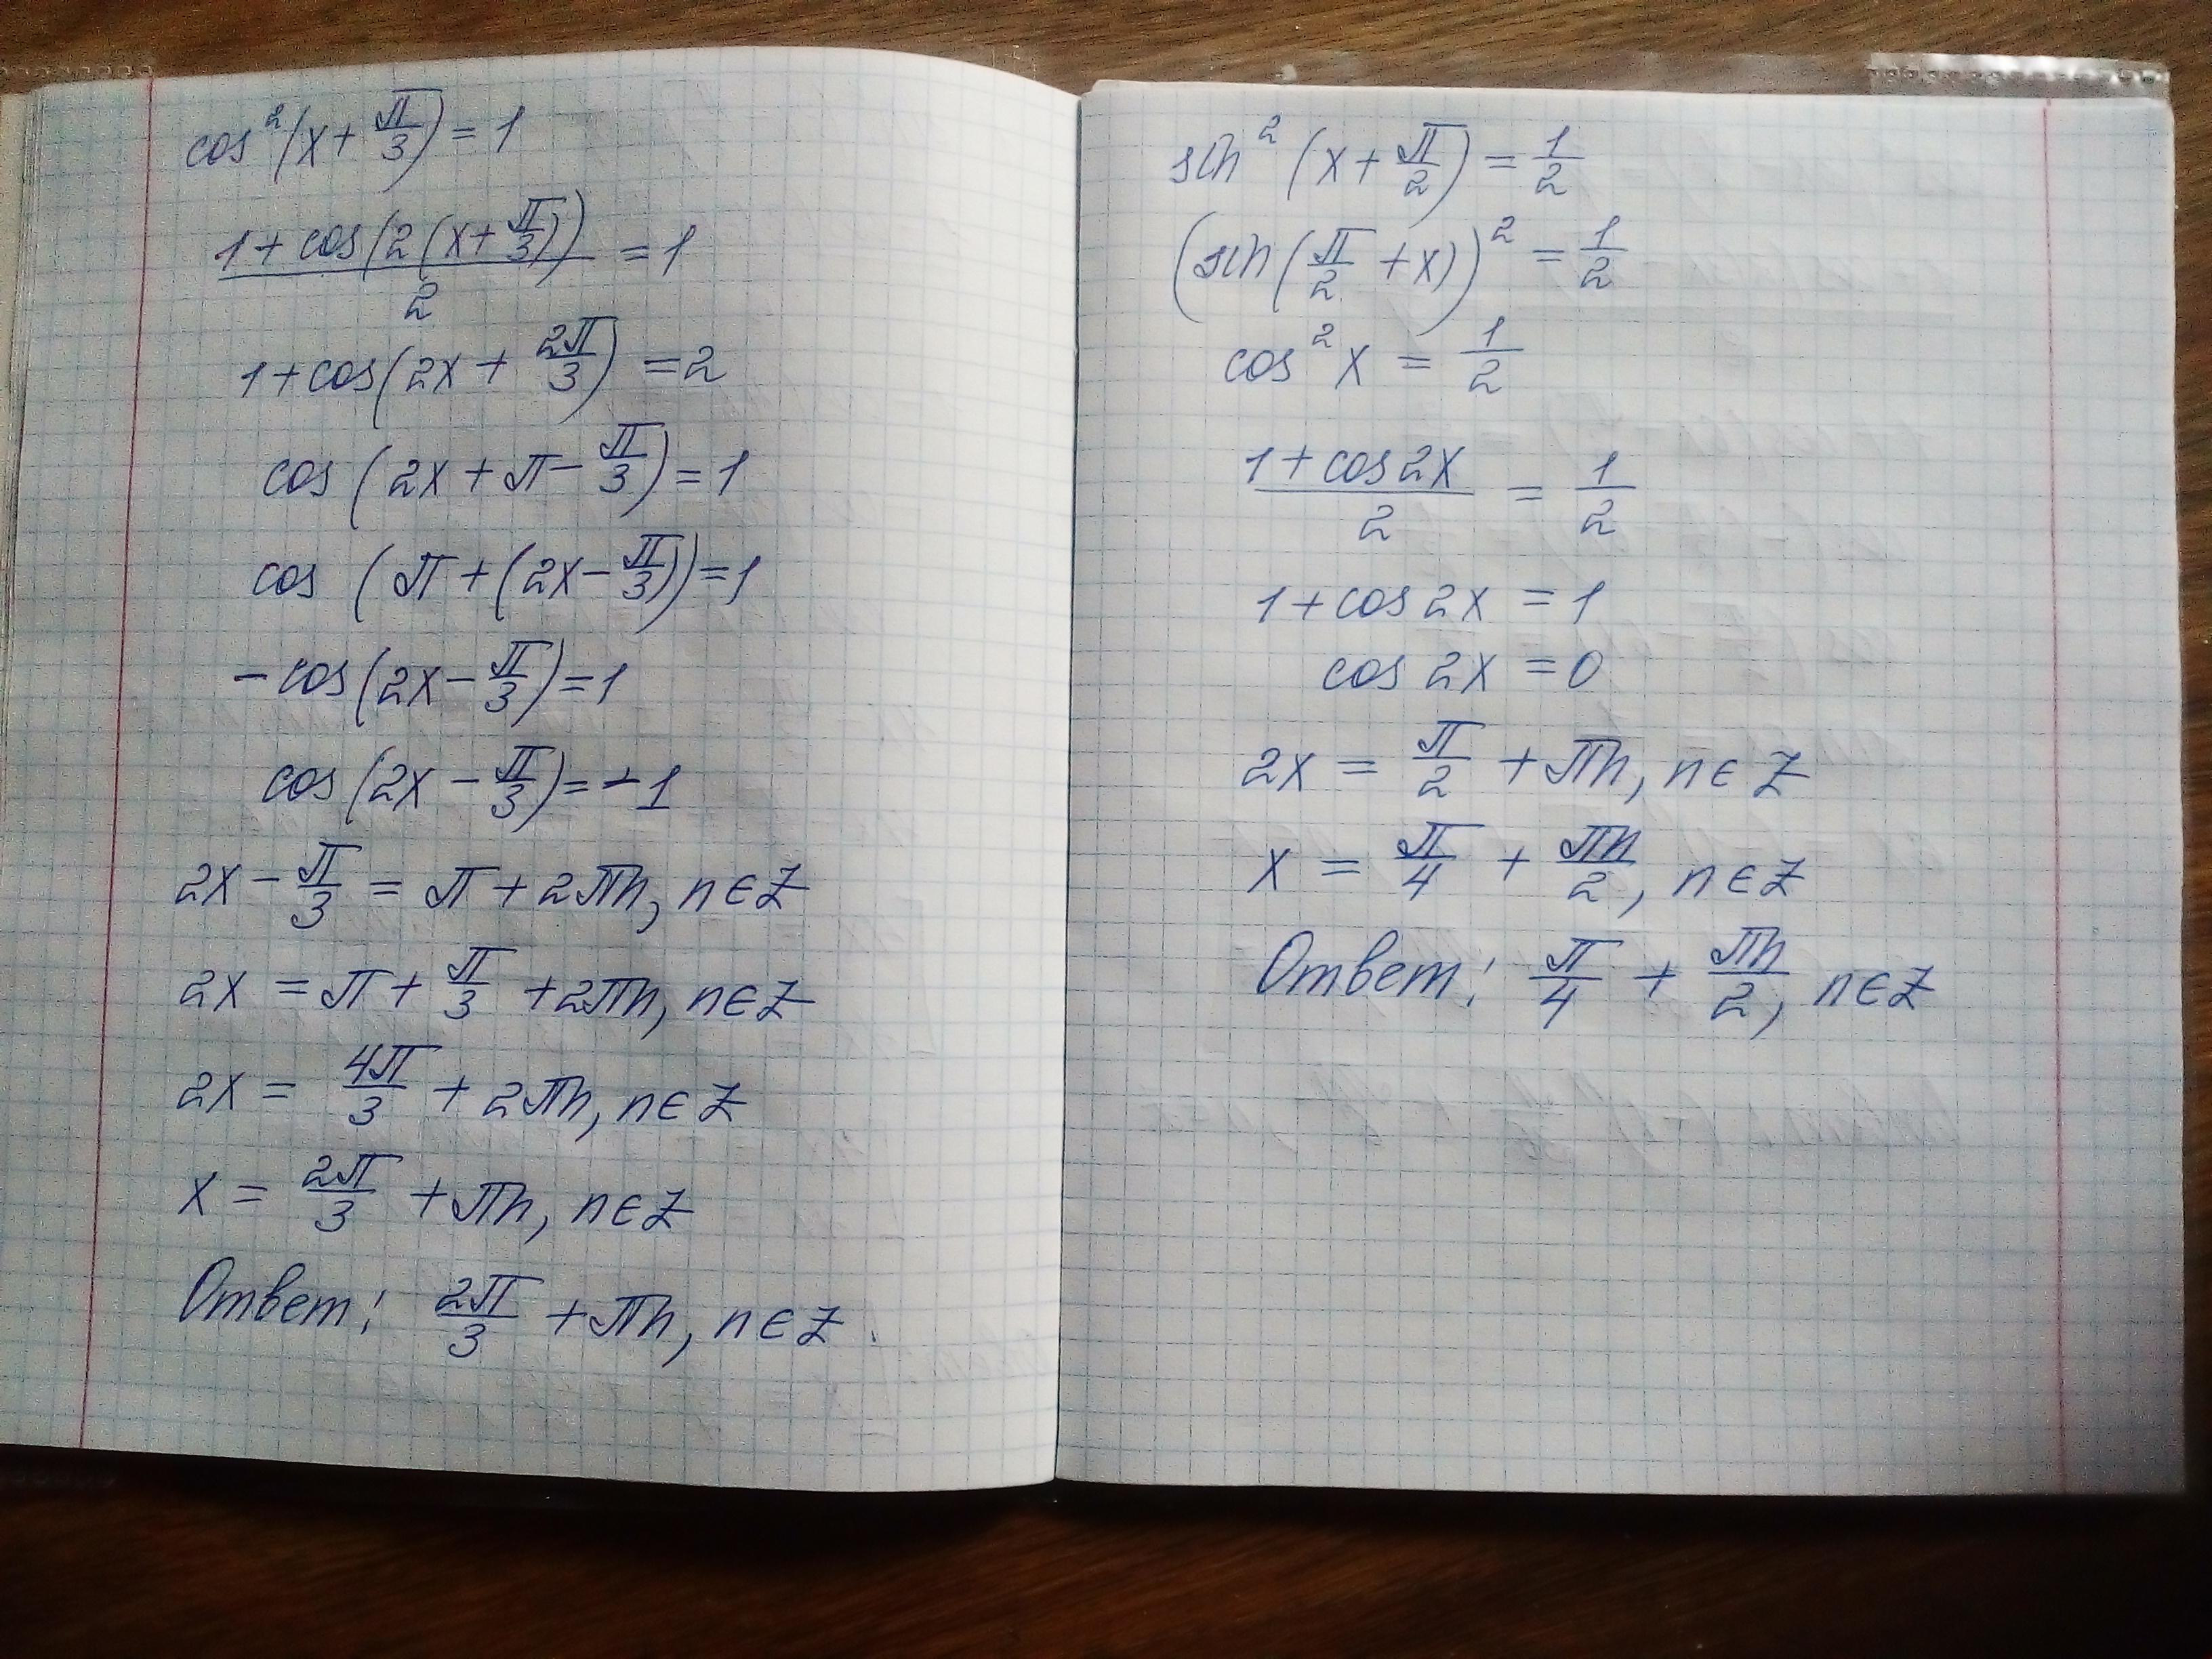 cos²(x + π/3) = 1
(1 + cos(2(x + π/3)))/2 = 1
1 + cos(2x + 2π/3) = 2
cos(2x + π − π/3) = 1
cos(π + (2x − π/3)) = 1
−cos(2x − π/3) = 1
cos(2x − π/3) = −1
2x − π/3 = π + 2πn, n ∈ Z
2x = π + π/3 + 2πn, n ∈ Z
2x = 4π/3 + 2πn, n ∈ Z
x = 2π/3 + πn, n ∈ Z
Ответ: 2π/3 + πn, n ∈ Z.
sin²(x + π/2) = 1/2
(sin(π/2 + x))² = 1/2
cos²x = 1/2
(1 + cos 2x)/2 = 1/2
1 + cos 2x = 1
cos 2x = 0
2x = π/2 + πn, n ∈ Z
x = π/4 + πn/2, n ∈ Z
Ответ: π/4 + πn/2, n ∈ Z